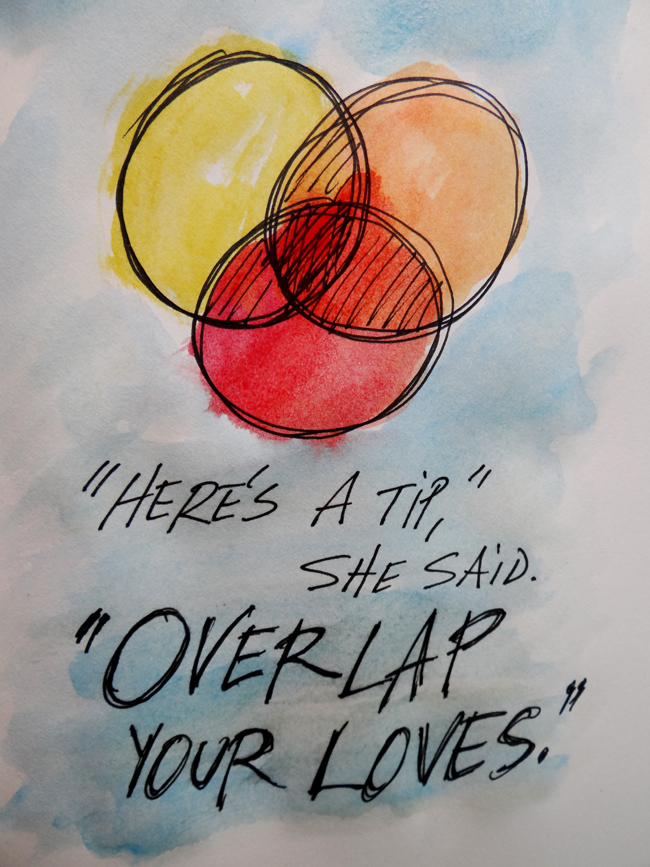 "HERE'S A TiP,"
SHE SAiD.
"OVERLAP
YOUR LOVES."